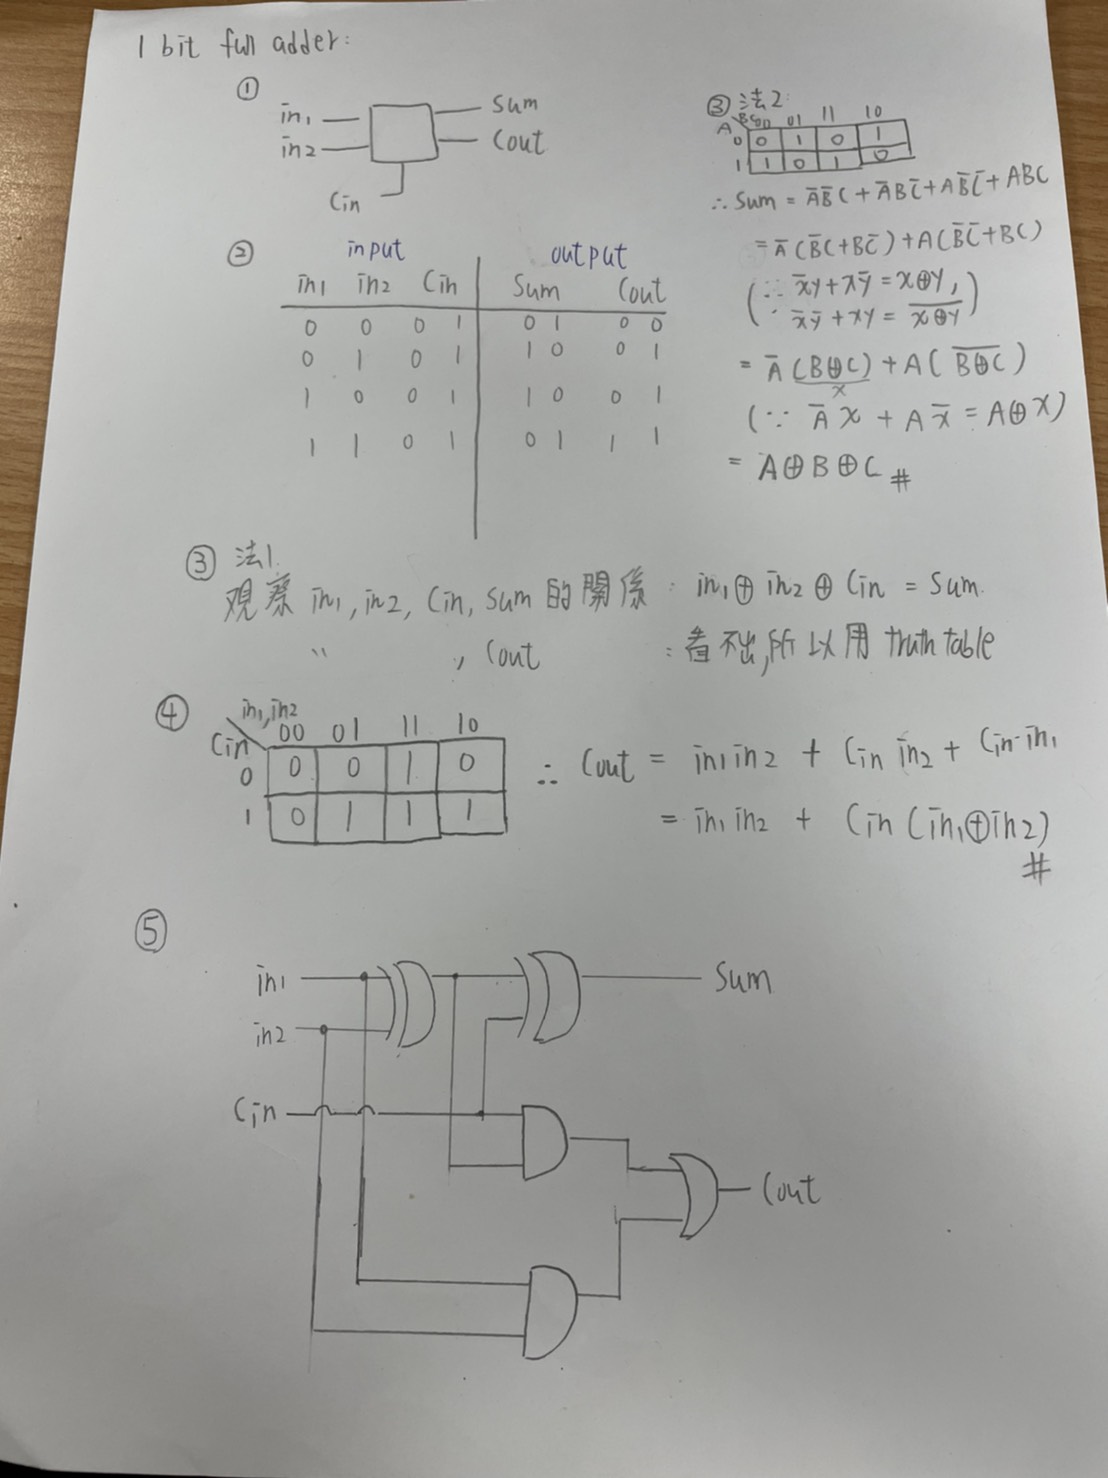 1 bit full adder:
①
in1
in2
Cin
Sum
Cout
②
input output
in1 in2 Cin Sum Cout
0 0 0 1 0 1 0 0
0 1 0 1 1 0 0 1
1 0 0 1 1 0 0 1
1 1 0 1 0 1 1 1
③ 法2
A BC 00 01 11 10
0 0 1 0 1
1 1 0 1 0
∴ Sum = A̅B̅C + A̅BC̅ + AB̅C̅ + ABC
= A̅(B̅C+BC̅) + A(B̅C̅+BC)
(∵ x̅y+xy̅ = x⊕y,
x̅y̅ + xy = \overline{x⊕y})
= A̅(B⊕C) + A(\overline{B⊕C})
x
(∵ A̅x + Ax̅ = A⊕x)
= A⊕B⊕C #
③ 法1.
觀察 in1, in2, Cin, Sum 的關係: in1⊕in2⊕Cin = Sum.
〃 , Cout : 看不出,所以用 truth table
④
in1,in2
Cin 00 01 11 10
0 0 0 1 0
1 0 1 1 1
∴ Cout = in1in2 + Cin in2 + Cin·in1
= in1in2 + Cin(in1⊕in2)
#
⑤
in1
Sum
in2
Cin
Cout